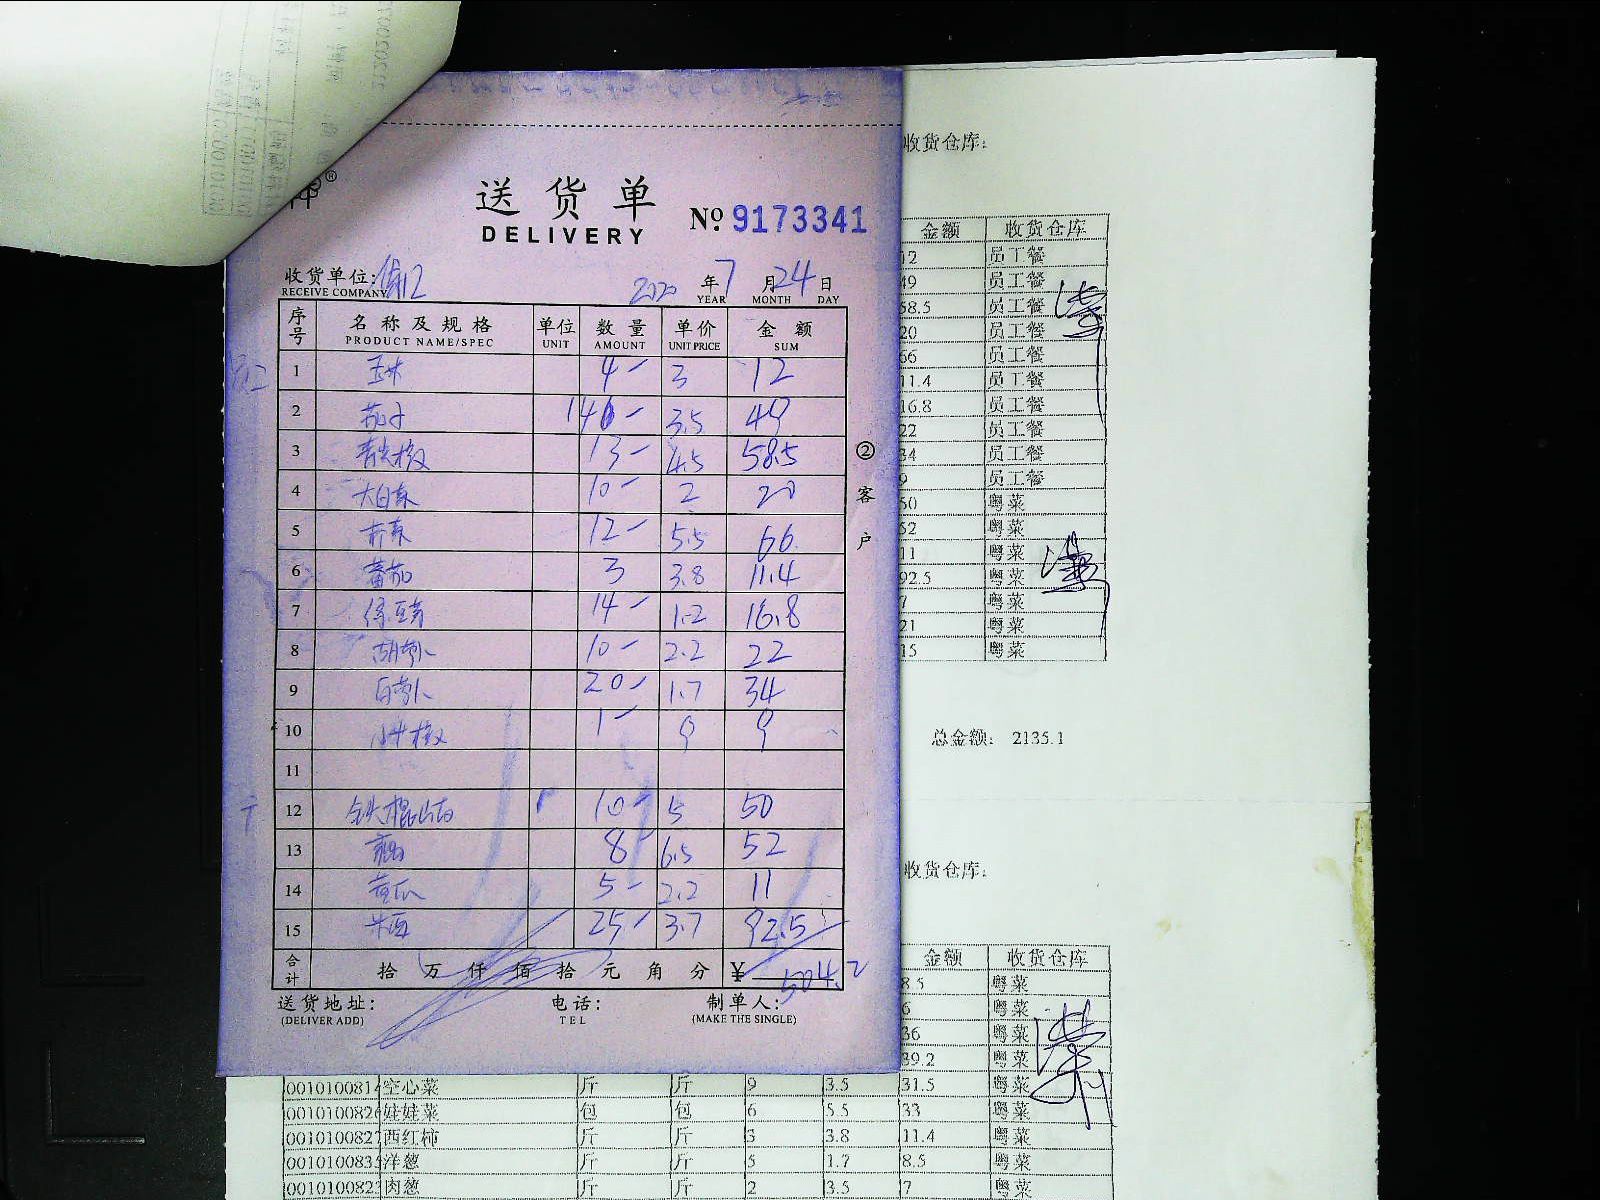 送货单
DELIVERY
№ 9173341
收货单位:
RECEIVE COMPANY
2020 年 7 月 24 日
YEAR MONTH DAY
序号 名称及规格 单位 数量 单价 金额
PRODUCT NAME/SPEC UNIT AMOUNT UNIT PRICE SUM
1 玉米 4 3 12
2 茄子 14 3.5 49
3 青尖椒 13 4.5 58.5
4 大白菜 10 2 20
5 芹菜 12 5.5 66
6 蕃茄 3 3.8 11.4
7 绿豆芽 14 1.2 16.8
8 胡萝卜 10 2.2 22
9 白萝卜 20 1.7 34
10 小米椒 1 9 9
11
12 铁棍山药 10 5 50
13 8 6.5 52
14 黄瓜 5 2.2 11
15 25 3.7 92.5
合计 拾 万 仟 佰 拾 元 角 分 ¥ 504.2
送货地址: 电话: 制单人:
(DELIVER ADD) TEL (MAKE THE SINGLE)
② 客户
收货仓库:
金额 收货仓库
12 员工餐
49 员工餐
58.5 员工餐
20 员工餐
66 员工餐
11.4 员工餐
16.8 员工餐
22 员工餐
34 员工餐
9 员工餐
50 粤菜
52 粤菜
11 粤菜
92.5 粤菜
7 粤菜
21 粤菜
15 粤菜
总金额: 2135.1
收货仓库:
金额 收货仓库
8.5 粤菜
6 粤菜
36 粤菜
39.2 粤菜
0010100814 空心菜 斤 斤 9 3.5 31.5 粤菜
001010082 娃娃菜 包 包 6 5.5 33 粤菜
001010082 西红柿 斤 斤 3 3.8 11.4 粤菜
001010083 洋葱 斤 斤 5 1.7 8.5 粤菜
001010082 肉葱 斤 斤 2 3.5 7 粤菜